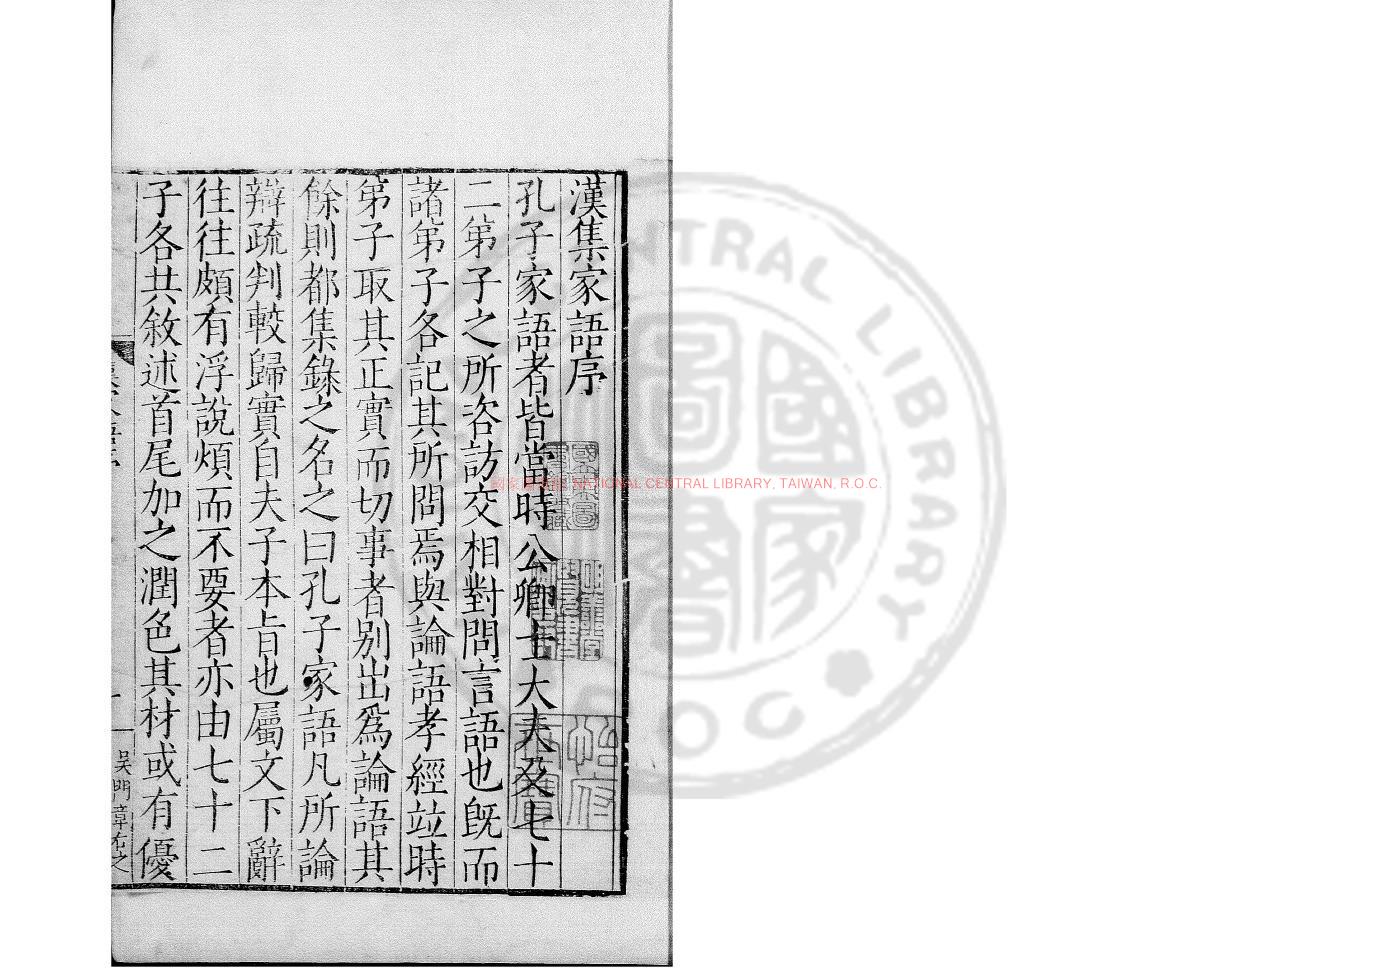 漢集家語序
孔子家語者皆當時公卿士大夫及七十
二第子之所咨訪交相對問言語也既而
諸第子各記其所問焉與論語孝經竝時
第子取其正實而切事者别出爲論語其
餘則都集錄之名之曰孔子家語凡所論
辯疏判較歸實自夫子本旨也屬文下辭
往往頗有浮說煩而不要者亦由七十二
子各共敘述首尾加之潤色其材或有優
吳門
國家圖書館 NATIONAL CENTRAL LIBRARY, TAIWAN, R.O.C.